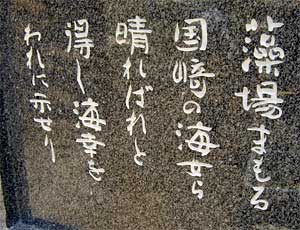 藻場まもる
国崎の海女ら
晴ればれと
得し海幸を
われに示せり